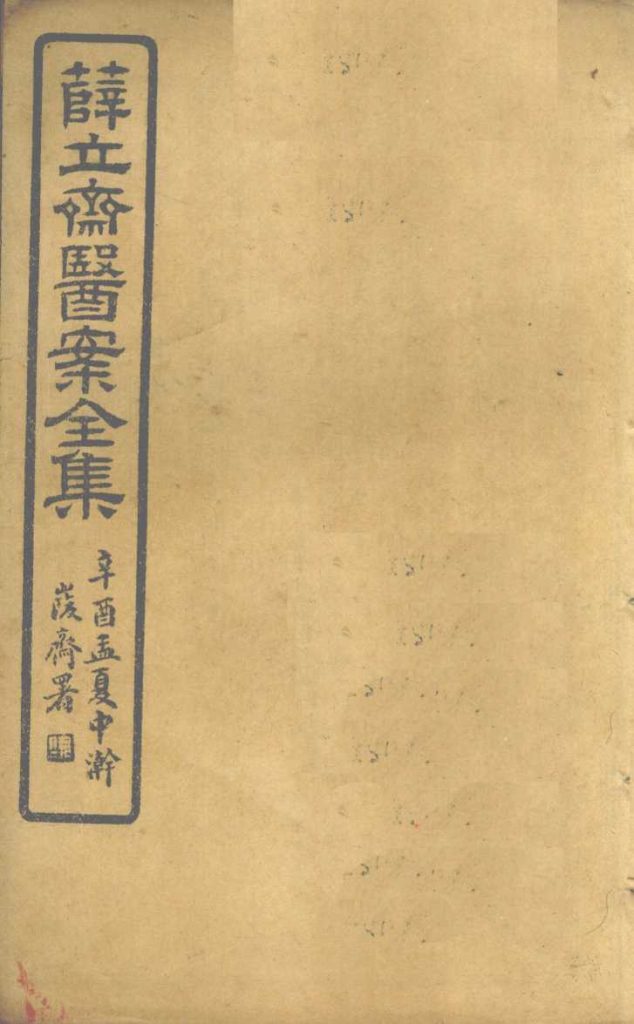 薛立齋醫案全集
辛酉孟夏中澣
署